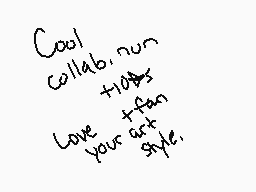 Cool
collab, nun
+10★s
+fan
Love
your art
style.